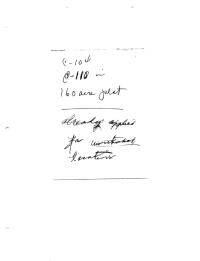 C-104
@-110 in
160 acre plat
Already applied
for unorthodox
location